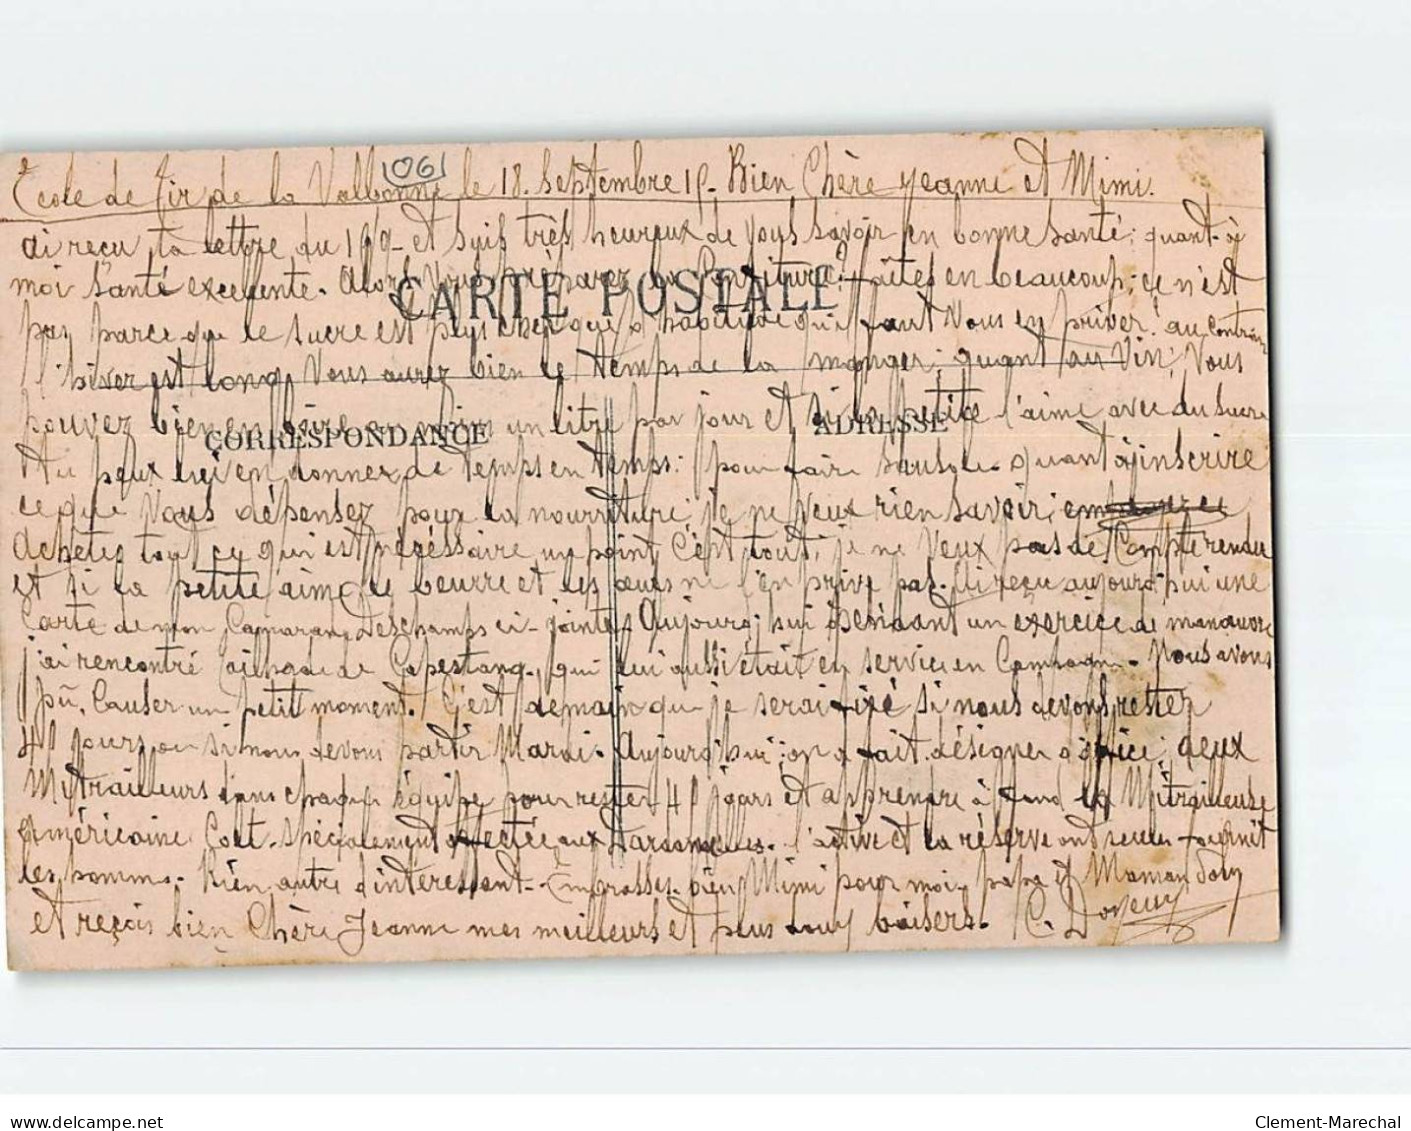 06
Ecole de Tir de la Valbonne le 18. Septembre 15- Bien Chère Jeanne et Mimi.
ai reçu ta lettre du 16/9- et suis très heureux de vous savoir en bonne santé; quant à
moi santé excellente. Alors vous préparez la Confiture? faites en beaucoup; ce n'est
CARTE POSTALE
pas parce que le sucre est plus cher que d'habitude qu'il faut vous en priver! au contraire
l'hiver est long, Vous aurez bien le temps de la manger; quant au Vin, Vous
pouvez bien en boire au moins un litre par jour et si la petite l'aime avec du sucre
CORRESPONDANCE
ADRESSE
tu peux lui en donner de temps en temps; pour faire quant à inscrire
ce que Vous dépensez pour la nourriture, je ne veux rien savoir;
achetez tout ce qui est nécessaire un point c'est tout; je ne veux pas de Compte rendu
et si la petite aime le beurre et les œufs ne l'en prive pas. ai reçu aujourd'hui une
Carte de mon Deschamps ci-jointe. Aujourd'hui pendant un exercice de manœuvre
j'ai rencontré de Capestang, qui lui aussi était en service en Campagne. Nous avons
pu causer un petit moment. C'est demain que je serai fixé si nous devons rester
40 jours ou si nous devons partir Mardi. Aujourd'hui on a fait désigner d'office, deux
Mitrailleurs dans chaque équipe pour rester 40 jours et apprendre à fond la Mitrailleuse
Américaine Colt. spécialement affectée aux Dardanelles. l'active et la réserve ont seules fournit
les hommes. Rien autre d'intéressant. Embrasses bien Mimi pour moi, papa et Maman
et reçois bien Chère Jeanne mes meilleurs et plus doux baisers. C.
www.delcampe.net
Clement-Marechal